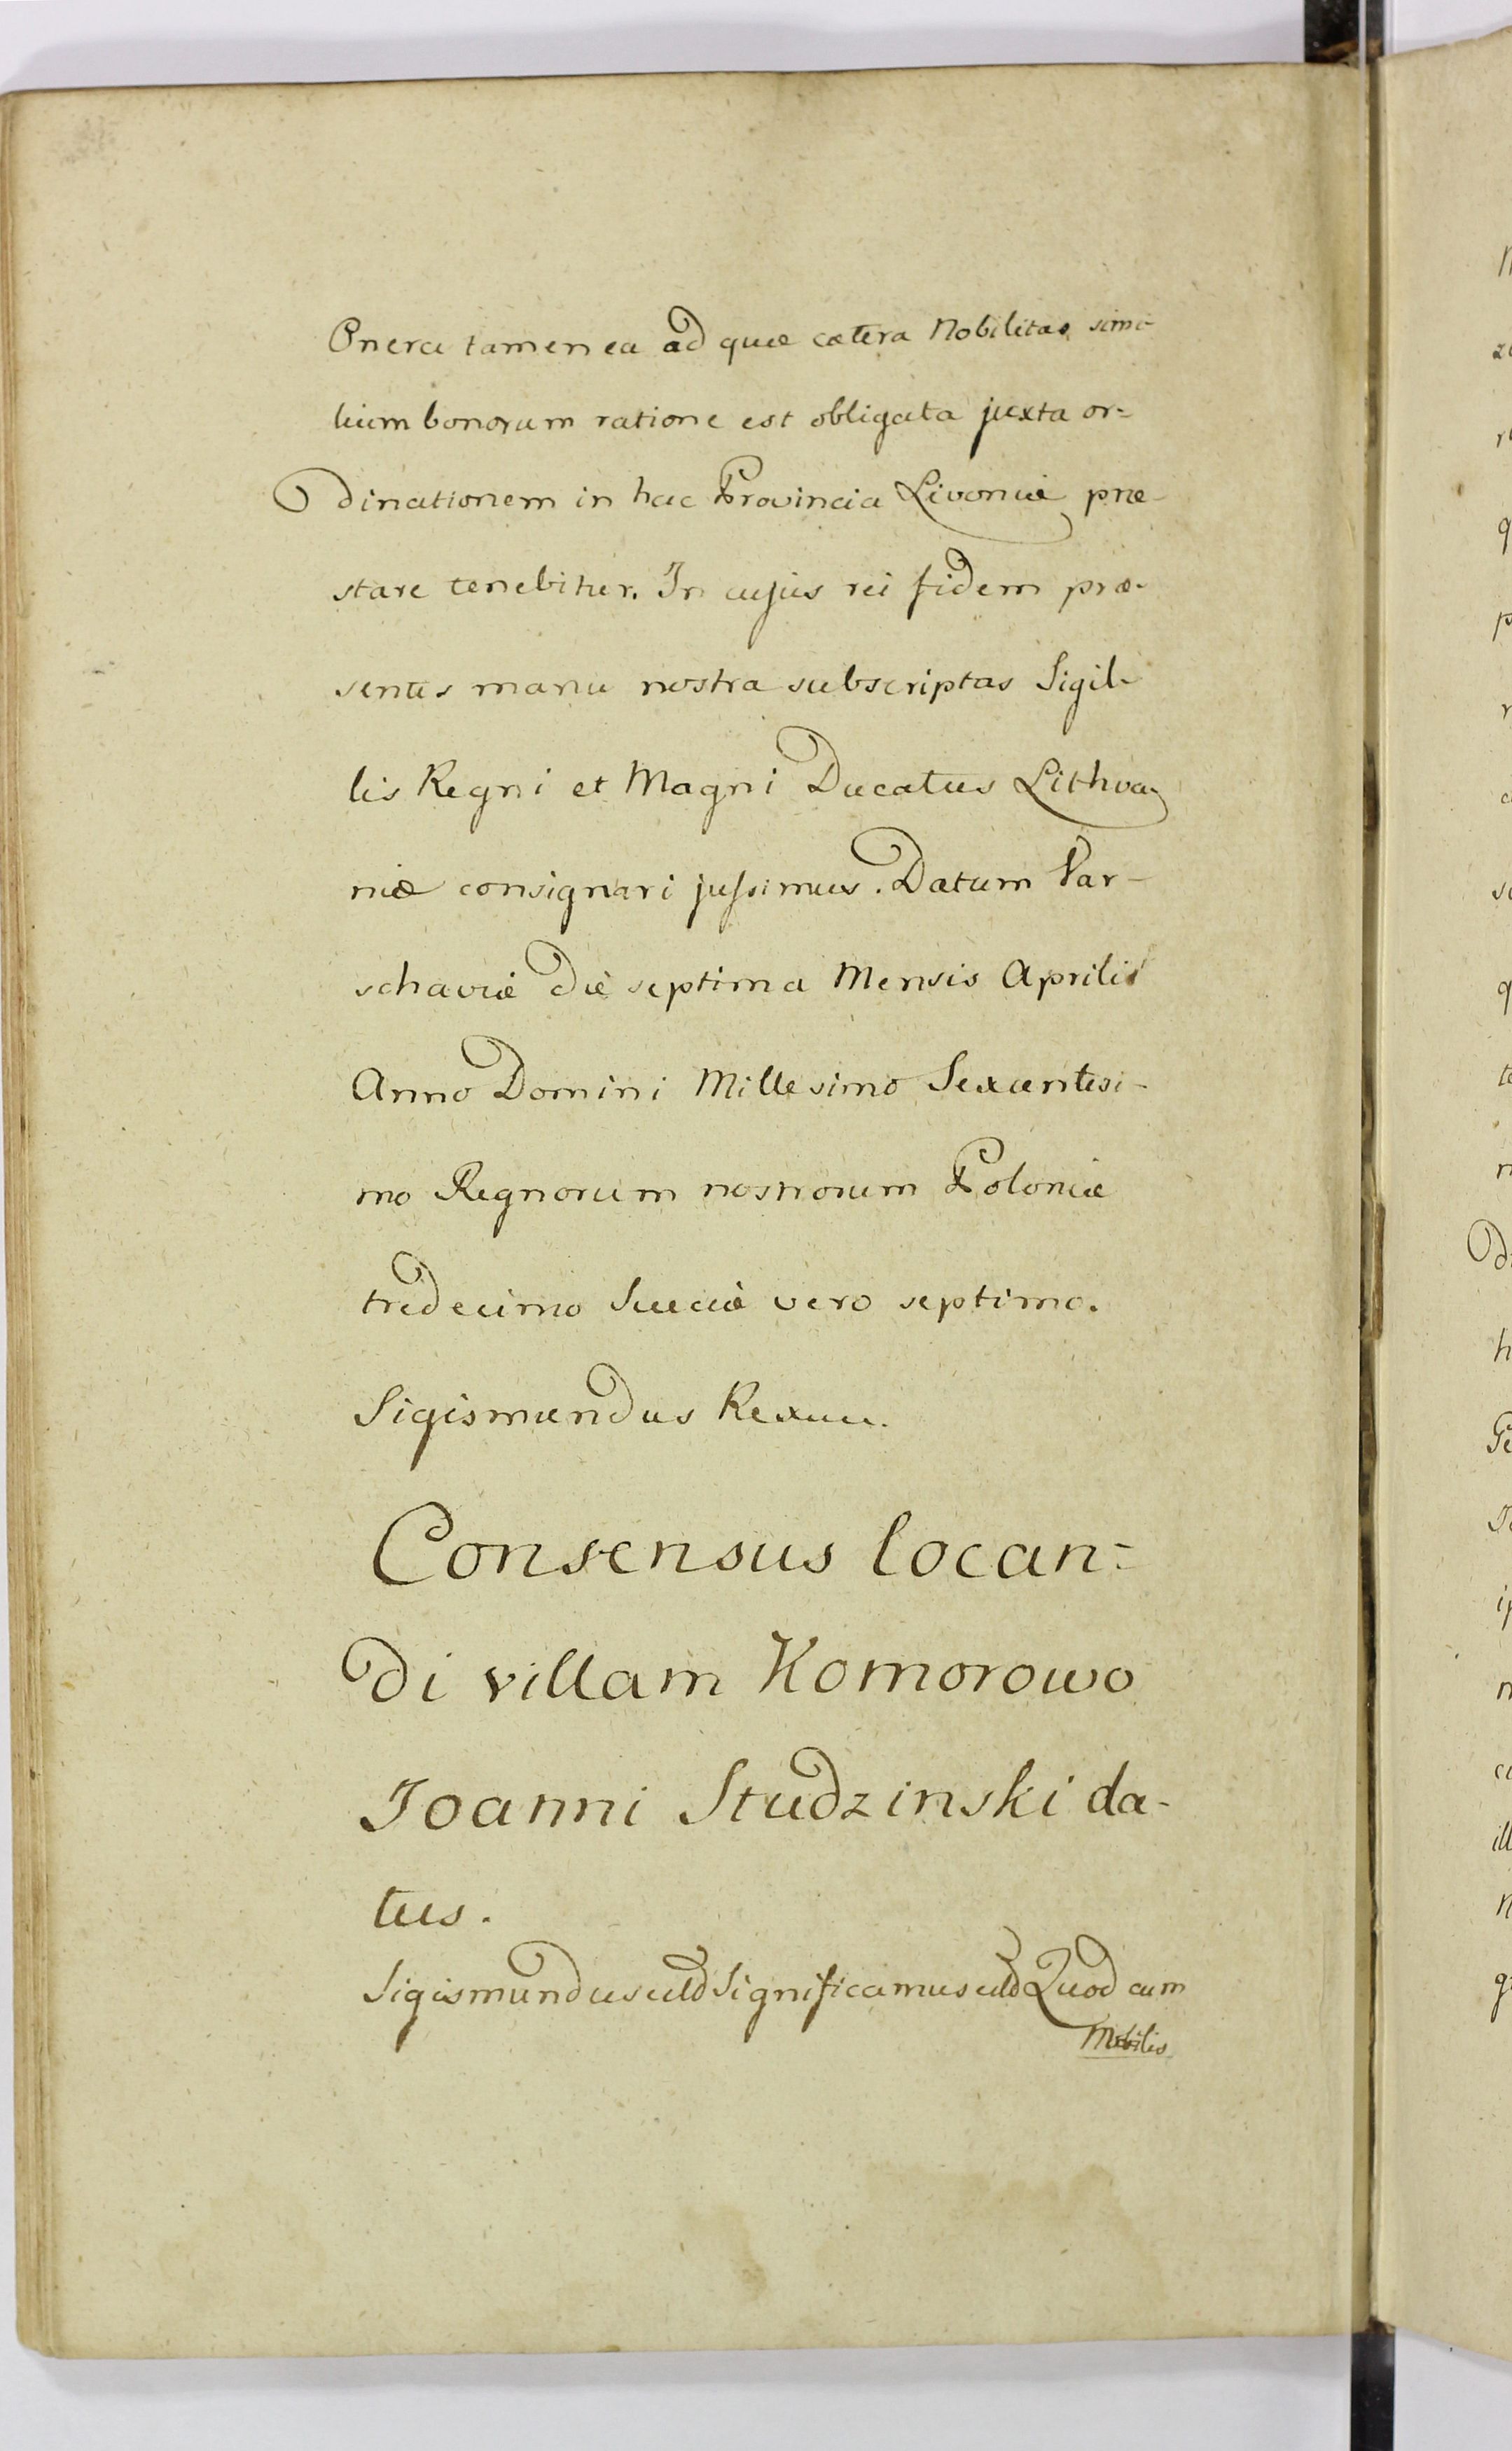 Onera tamen ea ad quæ cætera Nobilitas simi-
lium bonorum ratione est obligata juxta or-
dinationem in hac Provincia Livoniæ præ-
stare tenebitur. In cujus rei fidem præ-
sentes manu nostra subscriptas Sigil-
lis Regni et Magni Ducatus Lithva-
niæ consignari jussimus. Datum Var-
schaviæ die septima Mensis Aprilis
Anno Domini Millesimo Sexcentesi-
mo Regnorum nostrorum Poloniæ
tredecimo Sueciæ vero septimo.
Sigismundus Rex
Consensus locan=
di villam Komorowo
Joanni Studzinski da-
tus.
Sigismundus Significamus Quod cum
Nobilis